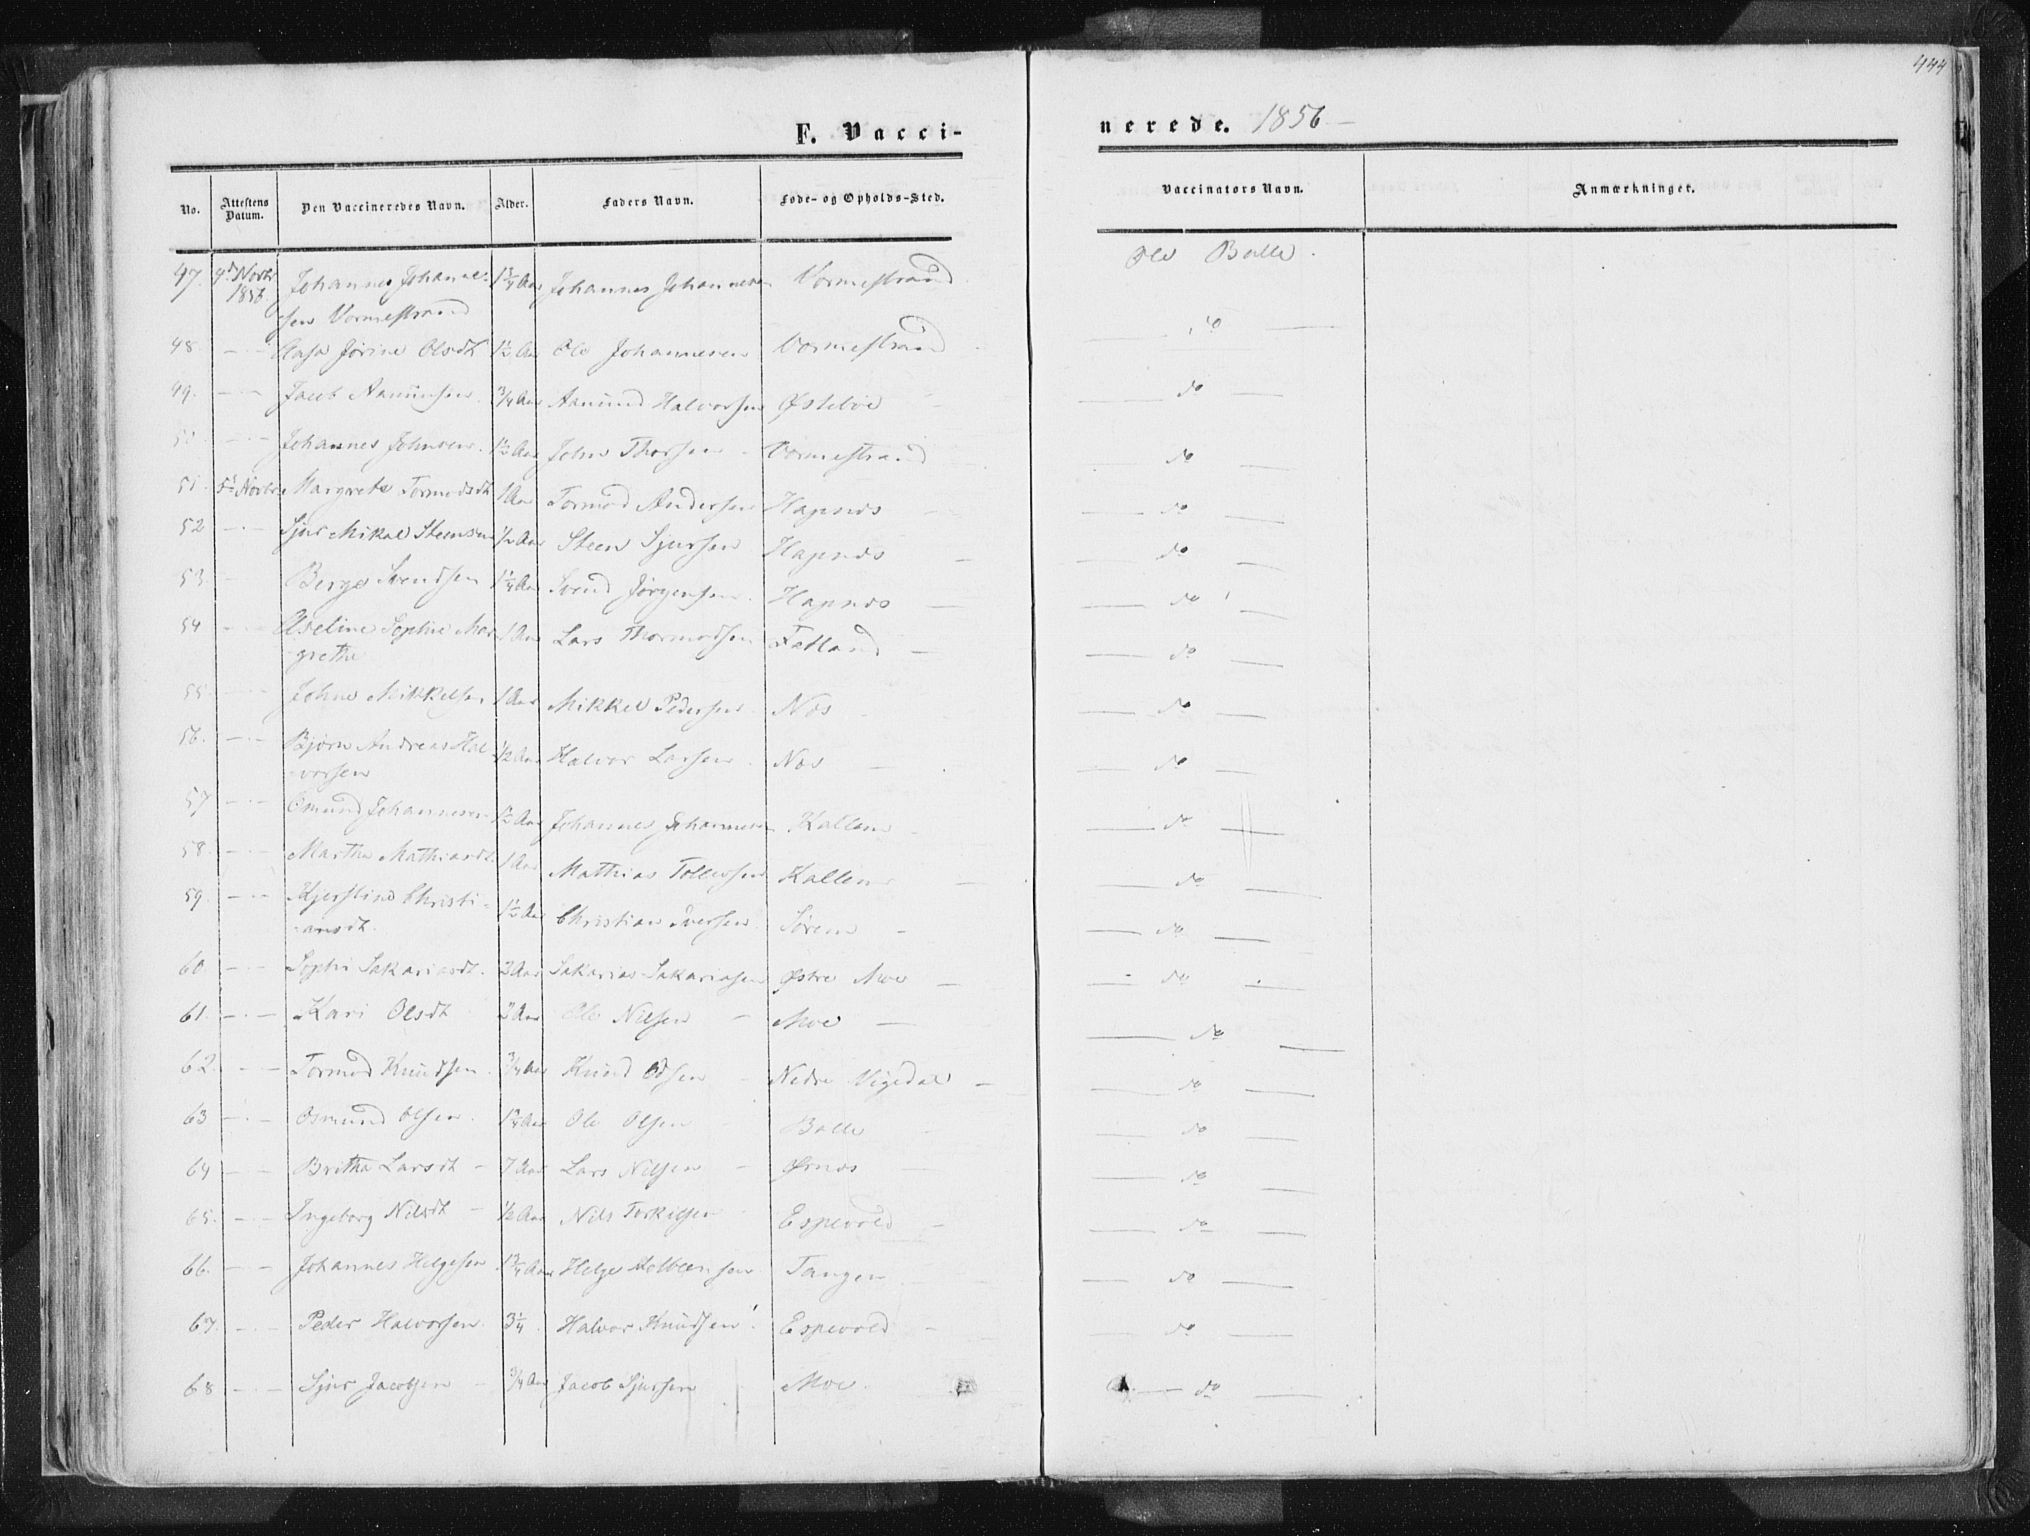 444
F. Vacci-
nerede. 1856
No. Attestens Datum. Den Vaccineredes Navn. Alder. Faders Navn. Føde- og Opholds-Sted. Vaccinators Navn. Anmærkninger.
47. 4d Novbr 1856. Johannes Johannes- 1 3/4 Aar Johannes Johannesen Vormestrand Ole Balle.
sen Vormestrand
48. — Aasa Jørine Olsdt 1 1/2 Aar Ole Johannesen Vormestrand do
49. — Jacob Aamunsen 3/4 Aar Aamund Halvorsen Østebøe do
— Johannes Johnsen. 1 1/2 Aar John Thorsen Vormestrand do
51. 5t Novbr Margrete Tormodsdt 1 Aar Tormod Andersen Hapnæs do
52 — Sjur Mikal Steensen 1/2 Aar Steen Sjursen Hapnæs do
53. — Berge Svendsen 1 1/4 Aar Svend Jørgensen Hapnæs do
54 — Adeline Sophie Mar- 1 Aar Lars Thormodsen Fatland do
grethe
55 — John Mikkelsen 1 Aar Mikkel Pedersen Næs do
56. — Bjørn Andreas Hal- 1/2 Aar Halvor Larsen Næs do
vorsen
57 — Osmund Johannesen 1 1/2 Aar Johannes Johannesen Kallem do
58. — Martha Mathiasdt. 1 Aar Mathias Tollevsen Kallem do
59. — Kjerstine Christi- 1 1/2 Aar Christian Iversen Sørem do
ansdt.
60. — Sophi Sakariasdt. 2 Aar Sakarias Sakariasen Østre Moe do
61. — Kari Olsdt 2 Aar Ole Nilsen Moe do
62. — Tormod Knudsen 3/4 Aar Knud Olsen Nedre Vigedal do
63 — Osmund Olsen. 1 3/4 Aar Ole Olsen Balle do
64 — Britha Larsdt 7 Aar Lars Nilsen Ørnæs do
65. — Ingeborg Nilsdt 1/2 Aar Nils Torkilsen Espevold do
66. — Johannes Helgesen 1 3/4 Aar Helge Tangen do
67. — Peder Halvorsen. 3 1/4. Halvor Knudsen Espevold do
68 — Sjur Jacobsen 3/4 Aar Jacob Sjursen Moe. do